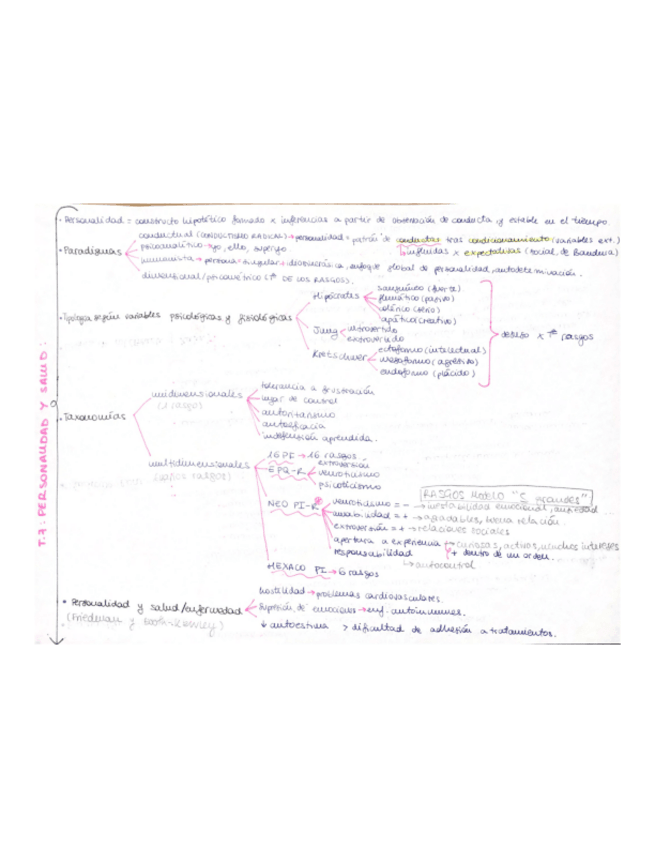 T.7: PERSONALIDAD Y SALUD:
· Personalidad = constructo hipotético formado x inferencias a partir de observación de conducta y estable en el tiempo.
· Paradigmas
conductual (CONDUCTISMO RADICAL) → personalidad = patrón de conductas tras condicionamiento (variables ext.)
influidas x expectativas (social, de Bandura)
psicoanalítico → yo, ello, superyo.
humanista → persona = singular e idiosincrásica, enfoque global de personalidad, autodeterminación.
dimensional/psicométrico (Tª DE LOS RASGOS).
· Tipología según variables psicológicas y fisiológicas
Hipócrates
sanguíneo (fuerte)
flemático (pasivo)
colérico (serio)
apático (creativo)
Jung
introvertido
extrovertido
Kretschmer
ectoformo (intelectual)
mesoformo (agresivo)
endoformo (plácido)
desuso x Tª rasgos
· Taxonomías
unidimensionales
(1 rasgo)
tolerancia a frustración
lugar de control
autoritarismo
autoeficacia
indefensión aprendida.
multidimensionales
(varios rasgos)
16 PF → 16 rasgos
EPQ-R
extraversión
neuroticismo
psicoticismo
NEO PI-R
RASGOS Modelo "5 grandes"
neuroticismo = - → inestabilidad emocional, ansiedad
amabilidad = + → agradables, buena relación
extroversión = + → relaciones sociales
apertura a experiencia + → curiosas, activas, muchos intereses
responsabilidad + dentro de un orden.
→ autocontrol
HEXACO PI → 6 rasgos
· Personalidad y salud/enfermedad
(Friedman y Booth-Kewley)
hostilidad → problemas cardiovasculares.
supresión de emociones → enf. autoinmunes.
↓ autoestima > dificultad de adhesión a tratamientos.